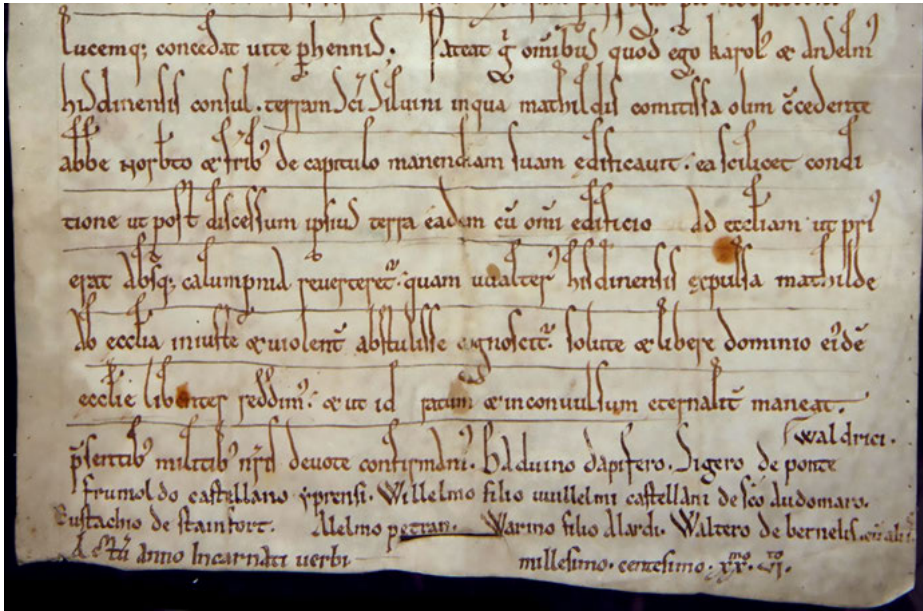 lucemq; concedat uite p̱hennis. Pateat g̊ om̄ibus quod ego karol᷒ & Anselm᷒
hisdinensis consul. terram sc̄i Siluini in qua mathildis comitissa olim c̄cedente
abb̄e norb̄to & fr̄ib᷒ de capitulo manendam suam edificauit: ea scilicet condi
tione ut post discessum ipsius terra eadem cū om̄i edificio ad eccl̄iam ut pri᷒
erat absq; calumpnia reuerteret᷑: quam uualter᷒ hisdinensis expulsa mathilde
Ab eccl̄ia iniuste & uiolent̄ abstulisse cognoscit᷑. solute & libere dominio eide᷒̄
eccl̄ie libenter reddim᷒: & ut id ratum & inconuulsum eternalit̄ maneat.
p̄sentib᷒ militib᷒ nr̄is deuote confirmam᷒. Balduino dapifero. Sigero de ponte Waldrici.
frumoldo castellano yprensi. Willelmo filio uuillelmi castellani de sc̄o Audomaro.
Eustachio de stainfort. Alelmo petran. Warino filio Alardi. Waltero de bernelis. cū aliis
Actū anno Incarnati uerbi millesimo. centesimo. xx.mo vi.to